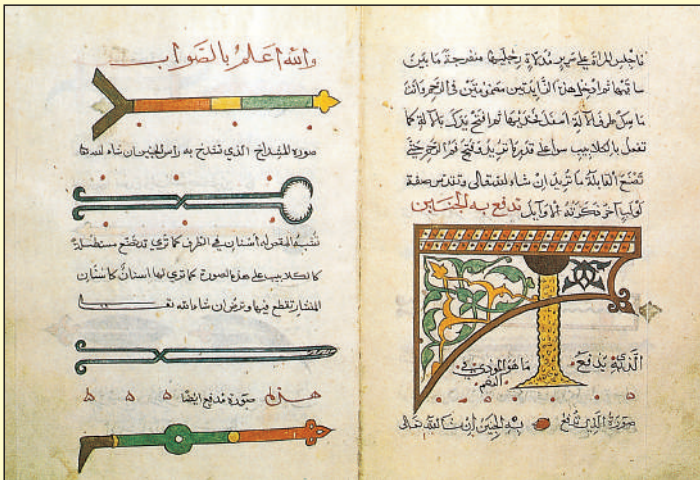 فاجلس المراة على سرير مدلاة رجليها منفرجة ما بين
ساقيها ثم ادخل هذا الزايدتين مضمومتين في الرحم وانت
ماسك طرف الالة اسفل فخذيها ثم افتح يدك بالالة كما
تفعل بالكلاليب سوا على قدر ما تريد فتح فم الرحم حتى
تضع القابلة ما تريد ان شاء الله تعالى وتقدس صفة
لولب اخر ذكرته الاوايل تدفع به الجنين
الذي يدفع ما هو المودي في
الفم
صورة الذي تدفع به الجنين ان شا الله تعالى
والله اعلم بالصواب
صورة المشداخ الذي تشدخ به راس الجنين ان شاء الله تعا
تشبه المقص له اسنان في الطرف كما ترى قد تصنع مستطيلة
كالكلاليب على هذه الصورة كما ترى لها اسنان كاسنان
المنشار تقطع فيها وترض ان شاء الله تعا
هذه صورة مدفع ايضا